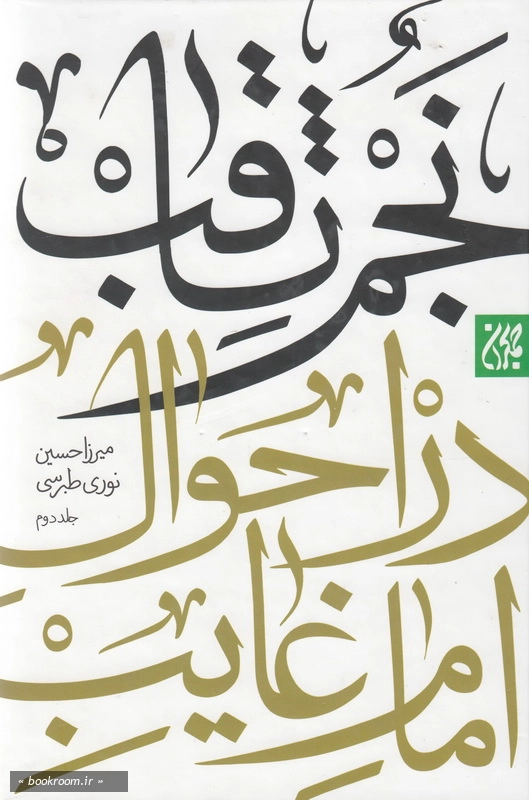 نجم ثاقب
در احوال
امام غایب
میرزا حسین
نوری طبرسی
جلد دوم
جمکران
« bookroom.ir »